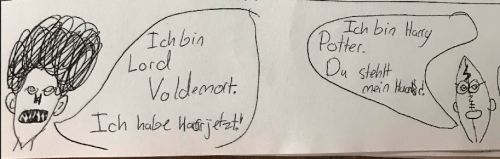 Ich bin
Lord
Voldemort.
Ich habe Haar jetzt!
Ich bin Harry
Potter.
Du stehlt
mein